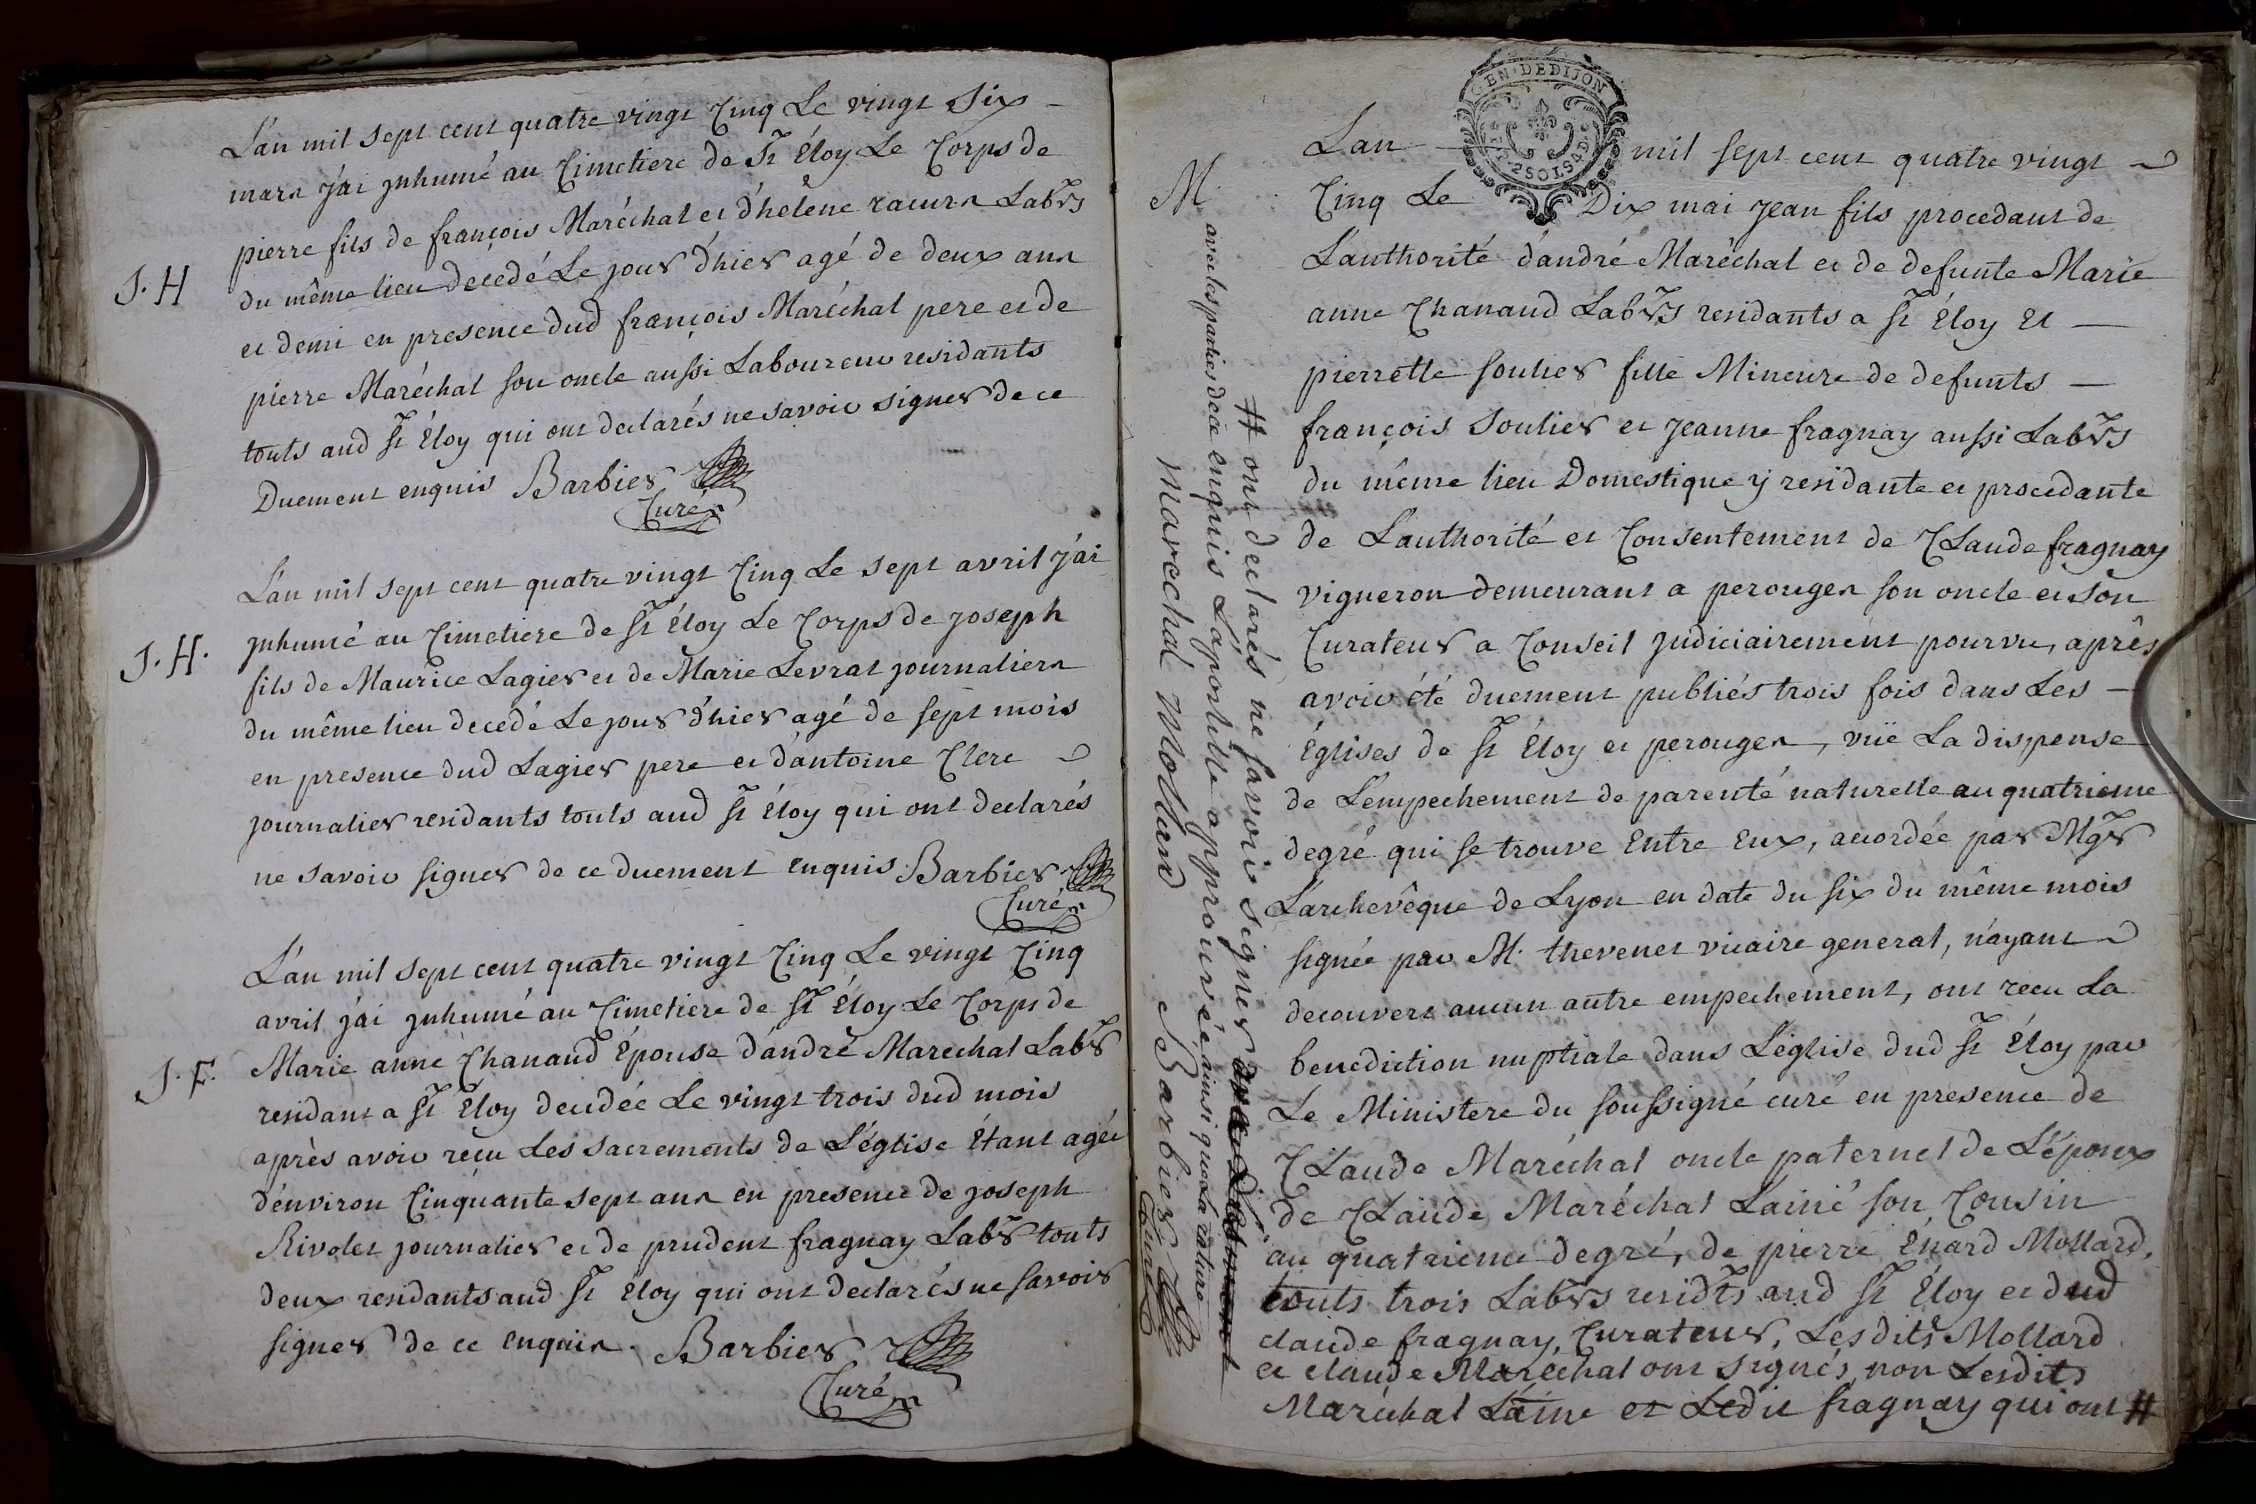 L'an mil sept cent quatre vingt Cinq Le vingt Six
mars j'ai jnhumé au Cimetiere de St Éloy Le Corps de
pierre fils de françois Maréchal et d'helene racurs Labrs
J. H
du même lieu decedé Le jour d'hier agé de deux ans
et demi en presence dud françois Maréchal pere et de
pierre Maréchal son oncle aussi Laboureur residants
touts aud St Éloy qui ont declarés ne savoir signer de ce
Duement enquis Barbier
Curé
L'an mil sept cent quatre vingt Cinq Le sept avril j'ai
jnhumé au Cimetiere de St Éloy Le Corps de joseph
J. H.
fils de Maurice Lagier et de Marie Levrat journaliers
du même lieu decedé Le jour d'hier agé de sept mois
en presence dud Lagier pere et d'antoine Clerc
journalier residants touts aud St Éloy qui ont declarés
ne savoir signer de ce duement enquis Barbier
Curé
L'an mil sept cent quatre vingt Cinq Le vingt Cinq
avril j'ai jnhumé au Cimetiere de St Éloy Le Corps de
J. F.
Marie anne Chanaud Épouse d'andré Marechal Labr
residant a St Éloy decedée Le vingt trois dud mois
après avoir reçu Les sacrements de L'église Étant agée
d'environ Cinquante sept ans en presence de joseph
Rivolet journalier et de prudent fragnay Labr touts
deux residants aud St Éloy qui ont declarés ne savoir
signer de ce enquis. Barbier
Curé
GEN. DE DIJON
2 SOLS 4 D.
M.
Lan mil sept cent quatre vingt
Cinq Le Dix mai jean fils procedant de
L'authorité d'andré Maréchal et de defunte Marie
anne Chanaud Labrs residants a St Éloy Et
pierrette soulier fille Mineure de defunts
françois Soulier et jeanne fragnay aussi Labrs
du même lieu Domestique ÿ residante et procedante
de L'authorité et Consentement de CLaude fragnay
vigneron demeurant a perouges son oncle et son
Curateur a Conseil judiciairement pourvu, après
avoir été duement publiés trois fois dans Les
Églises de St Éloy et perouges, vüe La dispense
de L'empechement de parenté naturelle au quatrieme
degré qui se trouve Entre Eux, accordée par Mgr
L'archevêque de Lyon en date du six du même mois
signée par M. thevenet vicaire general, n'ayant
decouvert aucun autre empechement, ont recu La
benediction nuptiale dans L'église dud St Éloy par
Le Ministere du soussigné curé en presence de
CLaude Maréchal oncle paternel de L'époux
de CLaude Maréchal L'ainé son Cousin
au quatrieme degré, de pierre Énard Mollard,
touts trois Labrs residts aud St Éloy et dud
claude fragnay, Curateur, Lesdits Mollard
et claude Maréchal ont signés, non Lesdits
Maréchal L'aine et Ledit fragnay qui ont #
# ont declarés ne savoir signer
avec les parties de ce enquis L'apostille approuvée ainsi que La rature
Marechal Mollard Barbier
Curé